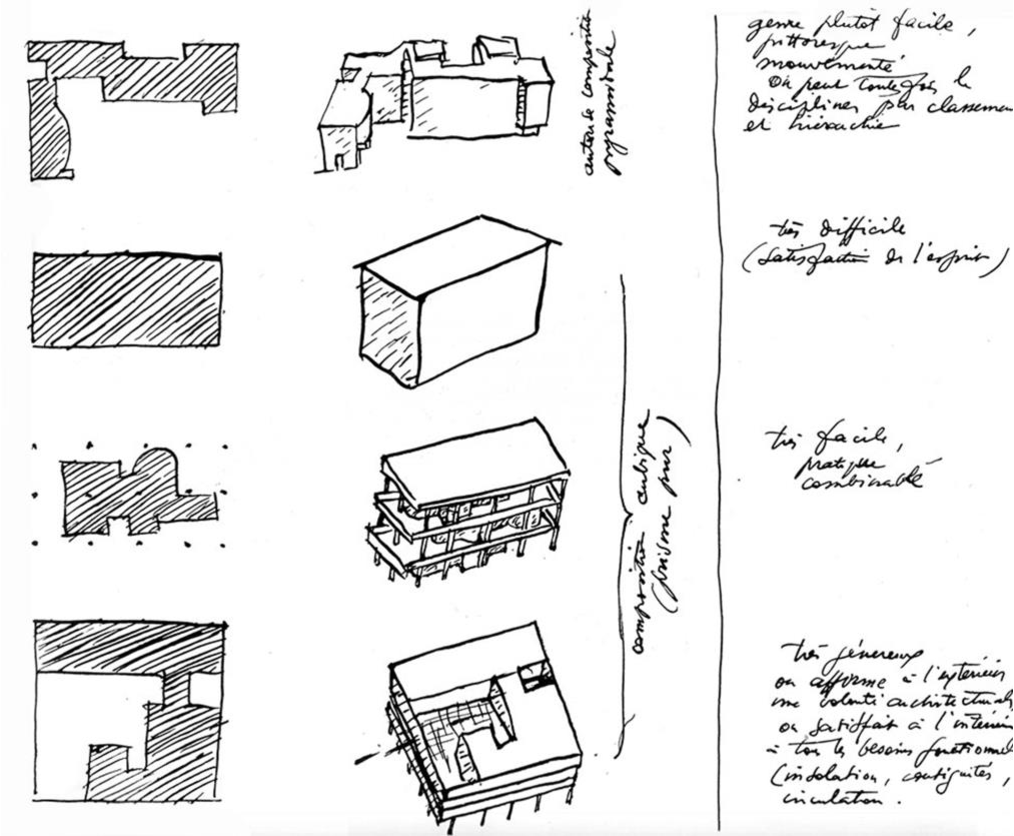 genre plutôt facile,
pittoresque
mouvementé
On peut toutefois le
discipliner par classemen
et hiérarchie
composition
pyramidale
très difficile
(satisfaction de l'esprit)
composition cubique
(prisme pur)
très facile,
pratique
combinable
très généreux
on affirme à l'extérieur
une volonté architectural
on satisfait à l'intérieu
à tous les besoins fonctionne
(insolation, contiguités,
circulation.